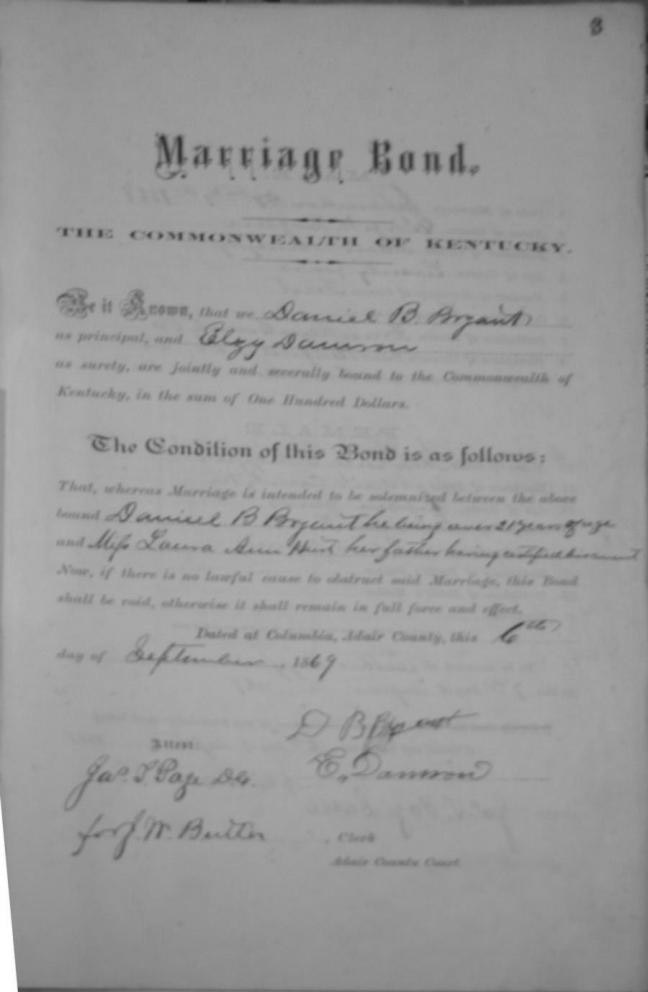 3
Marriage Bond.
THE COMMONWEALTH OF KENTUCKY.
Be it Known, that we Daniel B. Bryant
as principal, and Elzy Damron
as surety, are jointly and severally bound to the Commonwealth of
Kentucky, in the sum of One Hundred Dollars.
The Condition of this Bond is as follows:
That, whereas Marriage is intended to be solemnized between the above
bound Daniel B Bryant he being over 21 years of age
and Miss Laura Ann Hurt her father having certified his consent
Now, if there is no lawful cause to obstruct said Marriage, this Bond
shall be void, otherwise it shall remain in full force and effect.
Dated at Columbia, Adair County, this 6th
day of September, 1869
D B Bryant
Attest:
E. Damron
Jas. T. Page D.C.
for J. W. Butler , Clerk
Adair County Court